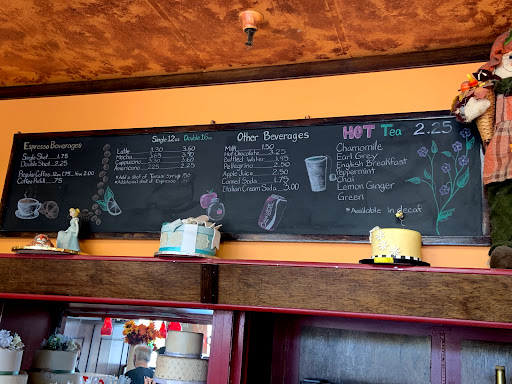 Espresso Beverages
Single Shot 1.75
Double Shot 2.25
Regular Coffee 12oz 1.75 16oz 2.00
Coffee Refill .75
Single 12oz Double 16oz
Latte 3.30 3.60
Mocha 3.65 3.90
Cappuccino 3.30 3.60
Americano 2.25 2.25
*Add a Shot of Torani Syrup .50
*Additional Shot of Espresso
Other Beverages
Milk 1.50
Hot Chocolate 3.25
Bottled Water
Pellegrino 2.50
Apple Juice
Canned Soda 1.75
Italian Cream Soda 3.00
HOT Tea 2.25
Chamomile
Earl Grey
English Breakfast
Peppermint
Chai
Lemon Ginger
Green
*Available in decaf